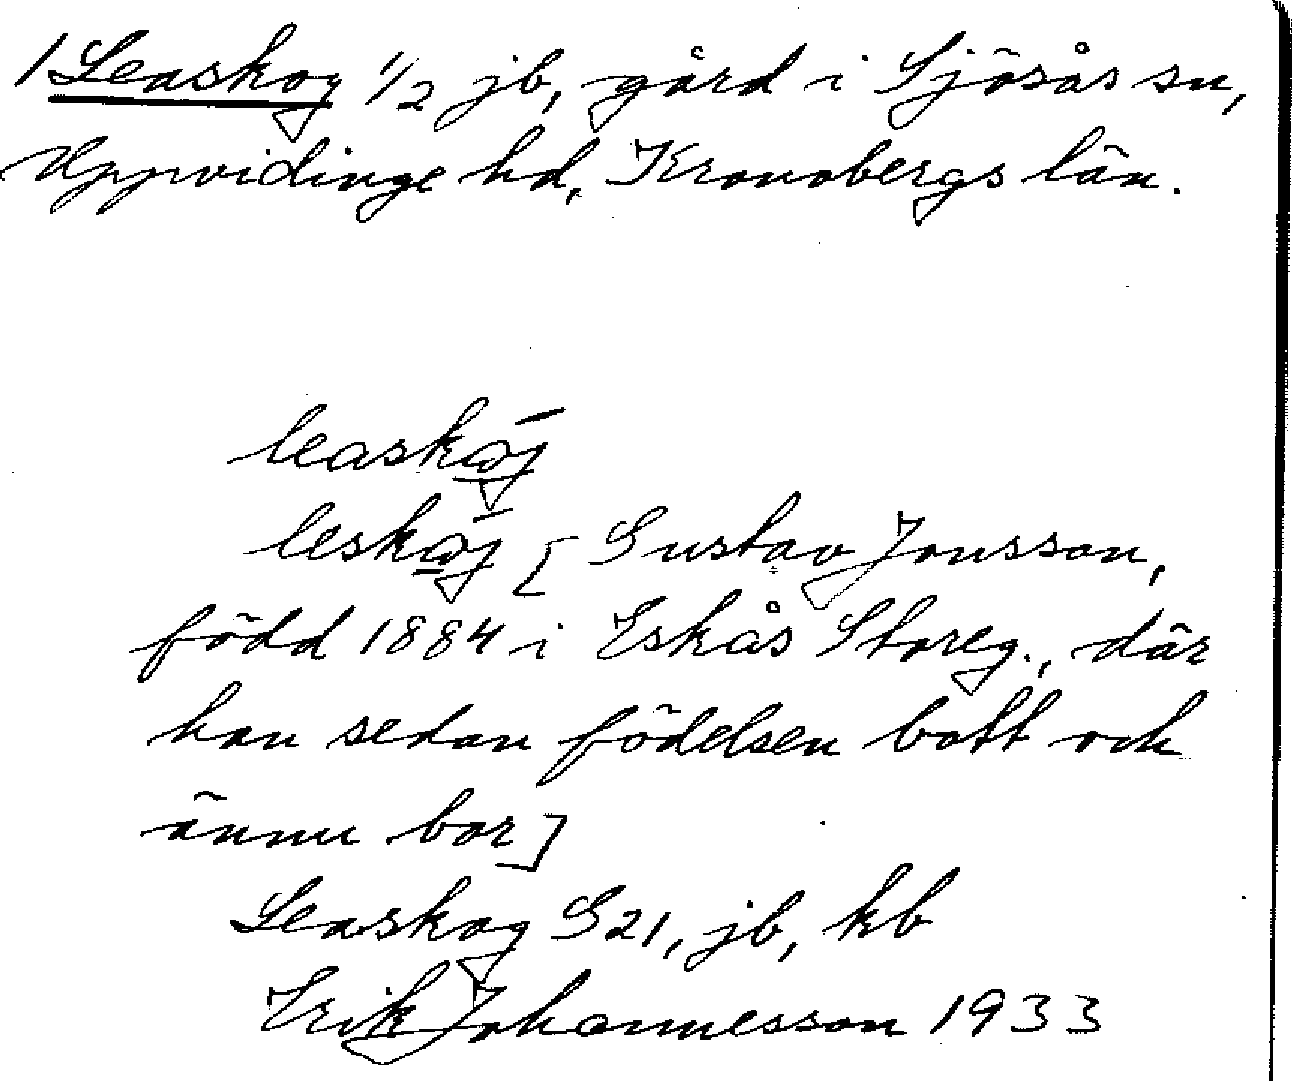 1 Leaskog 1/2 jb, gård i Sjösås sn,
Uppvidinge hd, Kronobergs län.
leaskoǥ
leskoǥ [Gustav Jonsson,
född 1884 i Eskås Storeg., där
han sedan födelsen bott och
ännu bor]
Leaskog S21, jb, kb
Erik Johannesson 1933